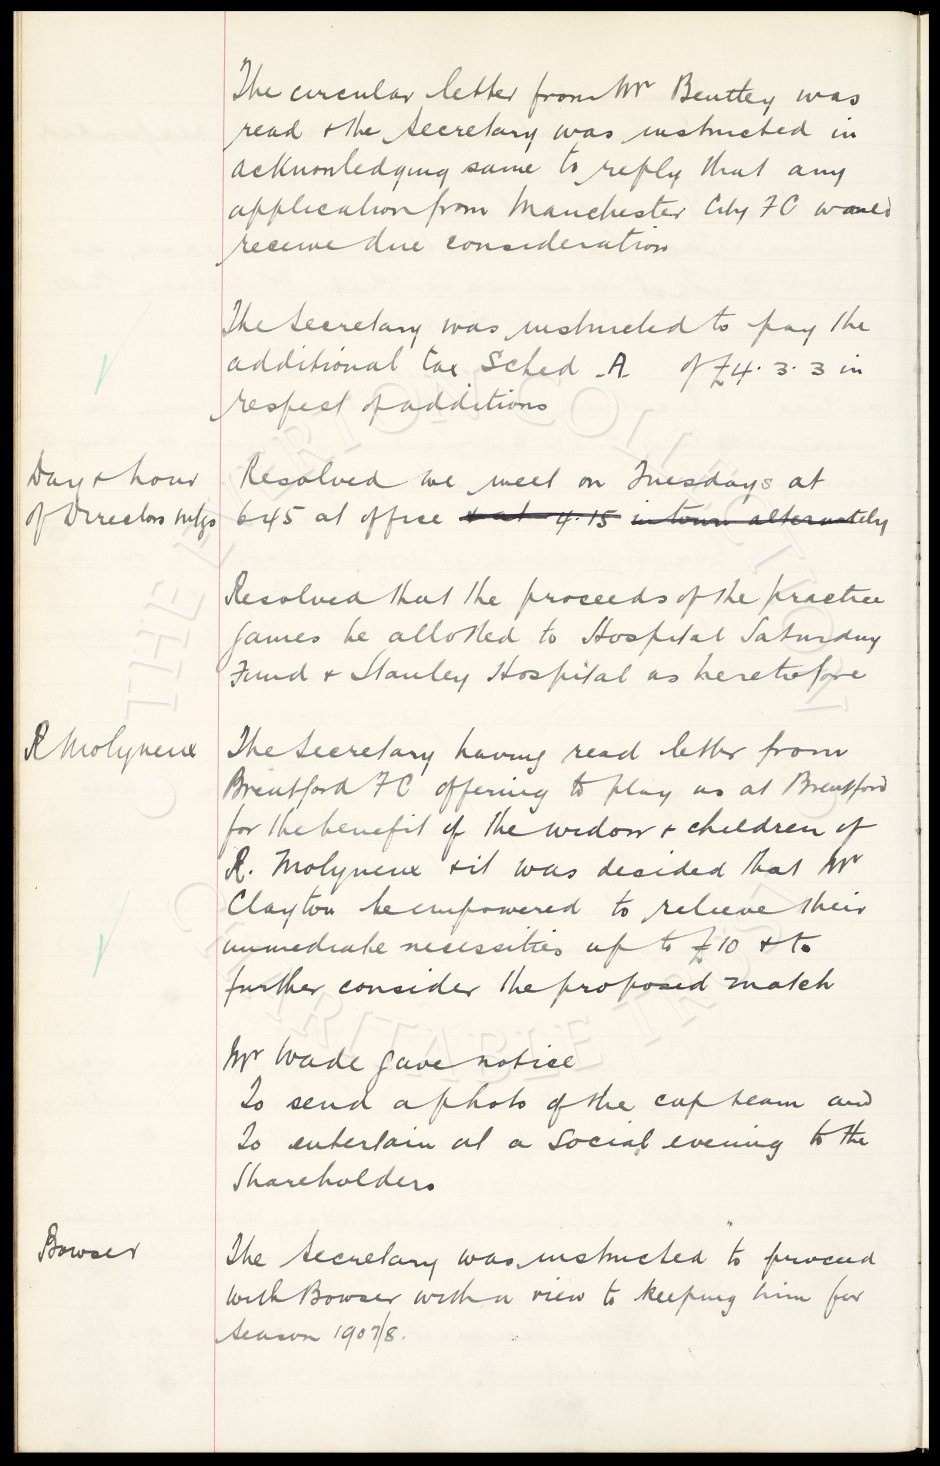 The circular letter from Mr Bentley was
read & the Secretary was instructed in
acknowledging same to reply that any
application from Manchester City FC would
receive due consideration
The Secretary was instructed to pay the
additional tax Sched A of £4.3.3 in
respect of additions
Day & hour
of Directors mtgs
Resolved we meet on Tuesdays at
645 at office & at 4.15 in town alternately
Resolved that the proceeds of the practice
games be allotted to Hospital Saturday
Fund & Stanley Hospital as heretofore
R Molyneux
The Secretary having read letter from
Brentford FC offering to play us at Brentford
for the benefit of the widow & children of
R. Molyneux & it was decided that Mr
Clayton be empowered to relieve their
immediate necessities up to £10 & to
further consider the proposed match
Mr Wade gave notice
To send a photo of the cup team and
To entertain at a Social evening to the
Shareholders
Bowser
The Secretary was instructed to proceed
with Bowser with a view to keeping him for
Season 1907/8.
© THE EVERTON COLLECTION CHARITABLE TRUST